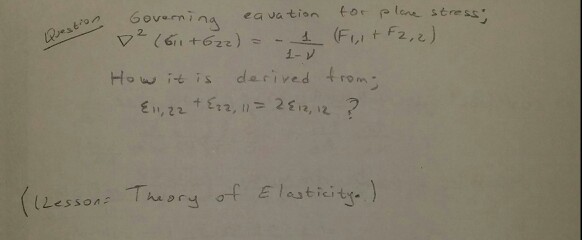 Question Governing equation for plane stress;
∇² (σ11+σ22) = - 1/(1-ν) (F1,1 + F2,2)
How it is derived from;
ε11,22 + ε22,11 = 2ε12,12 ?
(Lesson: Theory of Elasticity.)